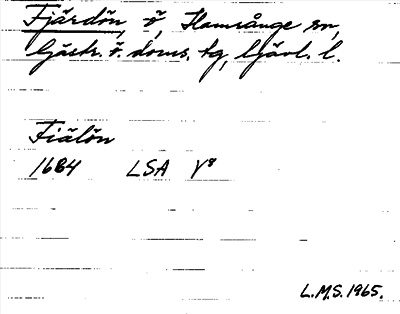 Fjärdön, ö, Hamrånge sn,
Gästr. ö. doms. tg, Gävl. l.
Fiälön
1684 LSA Y⁸
L.M.S. 1965.